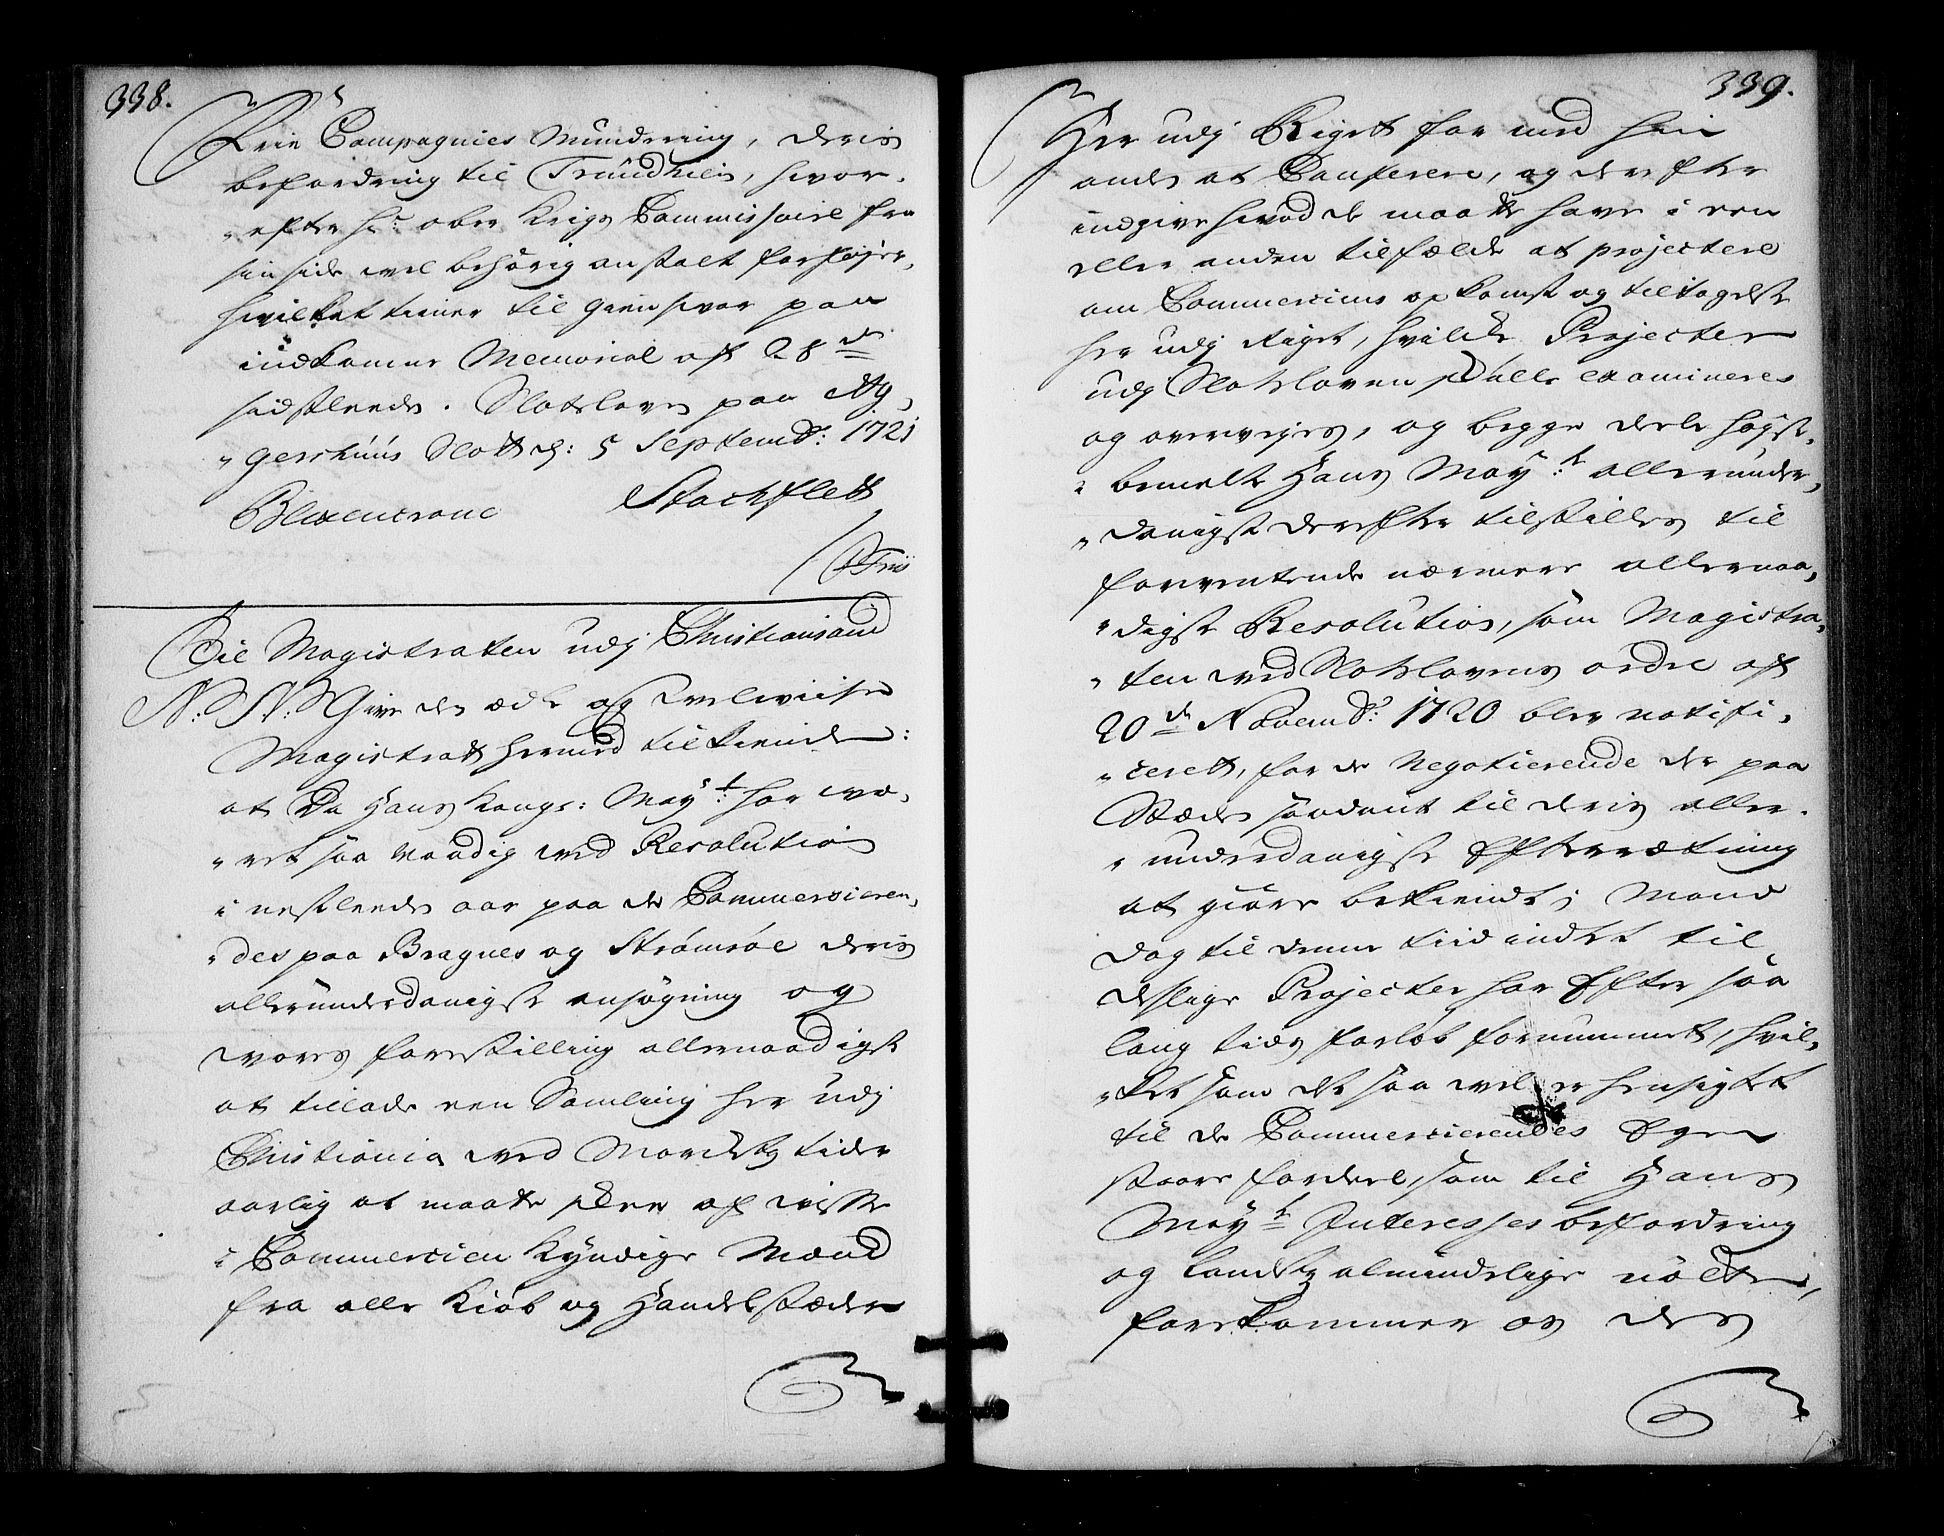 338.
Frie Compagnies Mundering, deris
befordring til Trundhiem, hvor-
"efter Hr: ober Krigs Commissaire fra
sin side vel behörig anstalt forföjer,
hvilket tiener til giensvar paa
indkomne Memorial af 28de
sidstleeden. Slotsloven paa Ag,
"gershuus Slott d: 5 Septembr: 1721
Blixencrone Stockfleth
/ Friis
Til Magistraten udj Christiansand
N: N: Give den ædle og velviise
Magistrat hermed tilkiende:
at Da Hans Kongl: Mayt: har væ,
"ret saa Naadig ved Resolution
i nestleeden aar paa de Commercieren,
"des paa Bragnes og Strömsöe deris
allerunderdanigste ansøgning og
vores forestilling allernaadigst
at tillade een Samling her udj
Christiania ved Markets tider
aarlig at maatte skee af visse
i Commercien kyndige Mænd
fra alle Kiöb og Handelstæder
339.
Her udj Riget for med hin
anden at Conferere, og derefter
indgive hvad de maatte have i een
eller anden tilfælde at projectere
om Commerciens opkomst og tiltagelse
her udj Riget, hvilke Projecter
udj Slotsloven skulle examineres
og overvejes, og begge deele høgst,
"bemelte Hans Mayt: allerunder,
"danigst derefter tilstilles til
forventende nærmere allernaa,
"digste Resolution, som Magistra,
"ten ved Slotslovens ordre af
20de Novembr: 1720 blev notifi,
"ceret, for de Negotierende der paa
Stæden saadant til deris aller-
"underdanigste Efterrætning
at giöre bekiendt; Mend
dag til denne tiid indtet til
deslige Projecter har Efter saa
lang tids forløb fornummet, hvil,
"ket som det saa vel er hensigtet
til de Commercierendes Egen
staare fordeel, som til Hans
Mayts Interesses befordring
og landets almindelige nötte,
forekommer os des